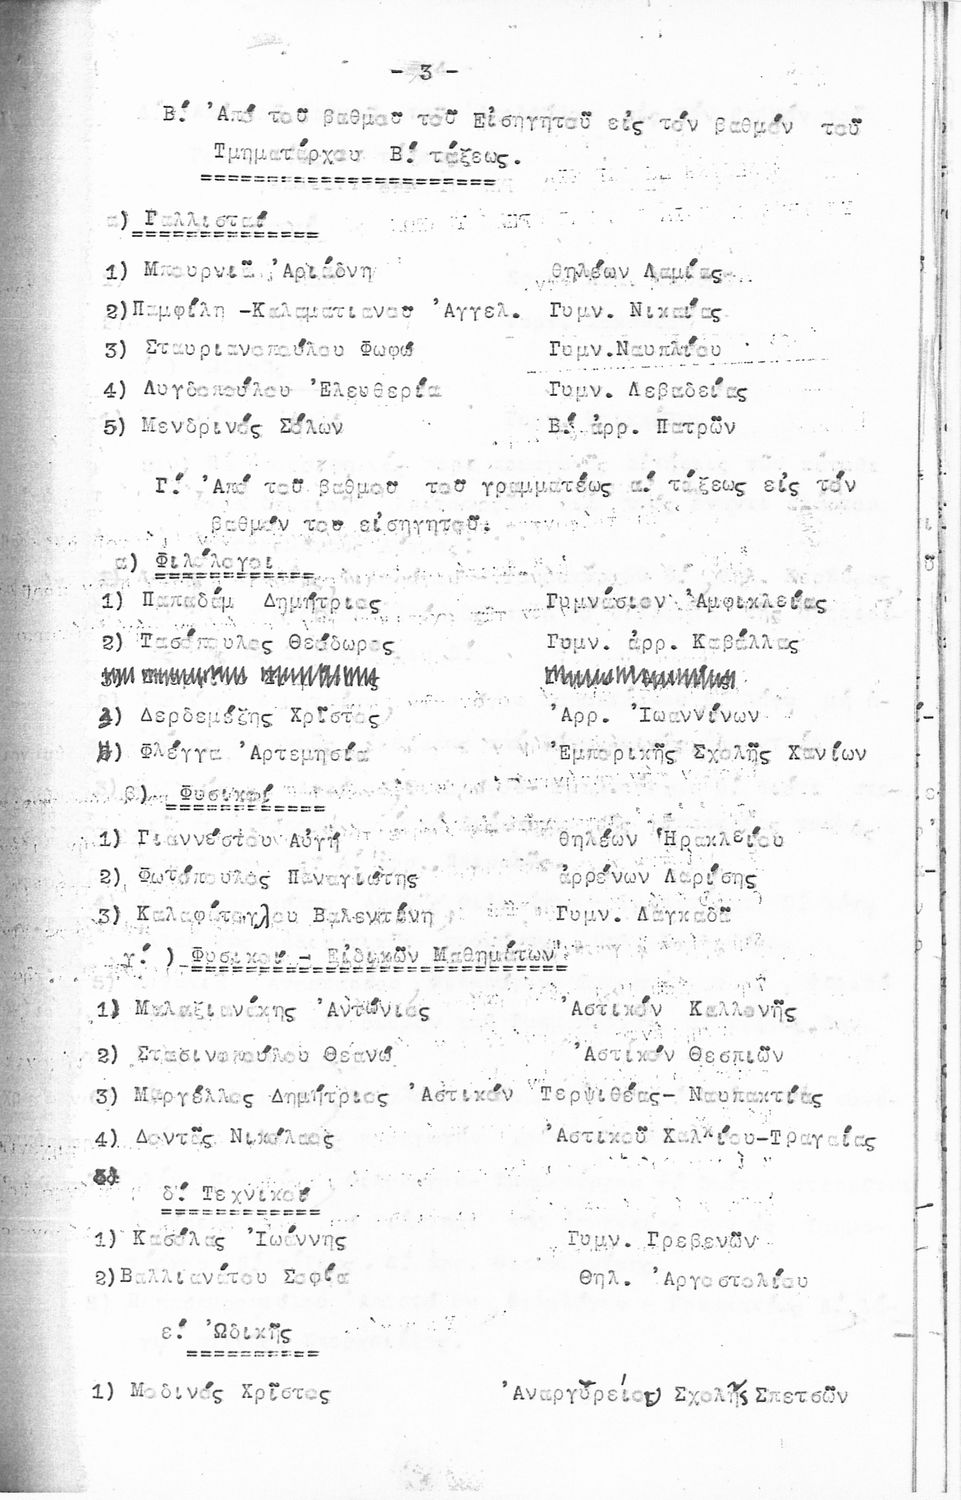 - 3 -
Β.' 'Από τοῦ βαθμοῦ τοῦ Εἰσηγητοῦ εἰς τόν βαθμόν τοῦ
Τμηματάρχου Β.' τάξεως.
α) Γαλλισταί
1) Μπουρνιᾶ 'Αριάδνη θηλέων Λαμίας
2)Παμφίλη -Καλαματιανοῦ 'Αγγελ. Γυμν. Νικαίας
3) Σταυριανοπούλου Φωφώ Γυμν.Ναυπλίου
4) Λυγδοπούλου 'Ελευθερία Γυμν. Λεβαδείας
5) Μενδρινός Σόλων Β.' ἀρρ. Πατρῶν
Γ.' 'Από τοῦ βαθμοῦ τοῦ γραμματέως α.' τάξεως εἰς τόν
βαθμόν τοῦ εἰσηγητοῦ.
α) Φιλόλογοι
1) Παπαδάμ Δημήτριος Γυμνάσιον 'Αμφικλείας
2) Τασόπουλος Θεόδωρος Γυμν. ἀρρ. Καβάλλας
3) Δερδεμέζης Χρῖστος 'Αρρ. 'Ιωαννίνων
4) Φλέγγα 'Αρτεμησία 'Εμπορικῆς Σχολῆς Χανίων
β) Φυσικοί
1) Γιαννέστου Αὐγή θηλέων 'Ηρακλείου
2) Φωτόπουλος Παναγιώτης ἀρρένων Λαρίσης
3) Καλαφάτογλου Βαλεντίνη Γυμν. Λαγκαδᾶ
γ.' ) Φυσικοί - Εἰδικῶν Μαθημάτων
1) Μαλαξιανάκης 'Αντώνιος 'Αστικόν Καλλονῆς
2) Στασινοπούλου Θεανώ 'Αστικόν Θεσπιῶν
3) Μαργέλλος Δημήτριος 'Αστικόν Τερψιθέας- Ναυπακτίας
4) Δοντᾶς Νικόλαος 'Αστικοῦ Χαλκίου-Τραγαίας
δ.' Τεχνικοί
1) Κασόλας 'Ιωάννης Γυμν. Γρεβενῶν
2)Βαλλιανάτου Σοφία Θηλ. 'Αργοστολίου
ε.' 'Ωδικῆς
1) Μοδινός Χρῖστος 'Αναργυρείου Σχολῆς Σπετσῶν